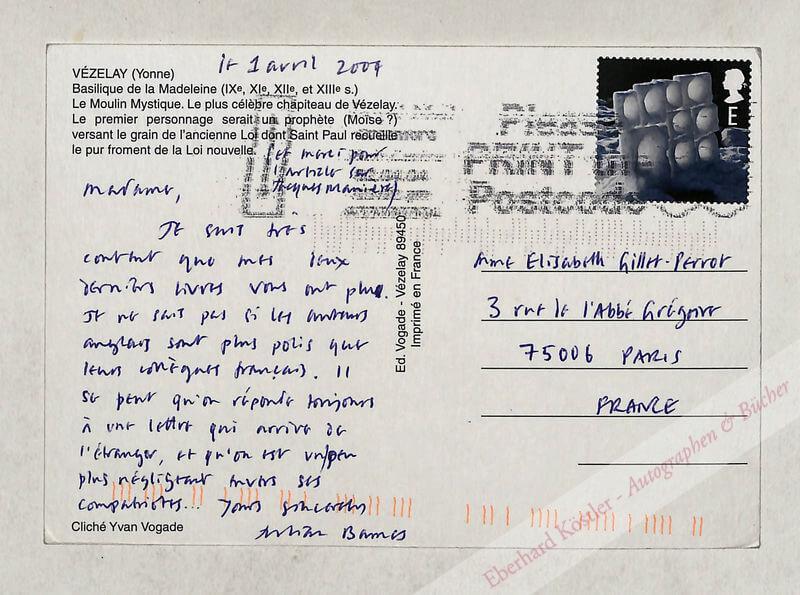 le 1 avril 2007
VÉZELAY (Yonne)
Basilique de la Madeleine (IXe, XIe, XIIe, et XIIIe s.)
Le Moulin Mystique. Le plus célèbre chapiteau de Vézelay.
Le premier personnage serait un prophète (Moïse ?)
versant le grain de l'ancienne Loi dont Saint Paul recueille
le pur froment de la Loi nouvelle.
(et merci pour
l'article sur
Jacques
Madame,
Je suis très
content que mes deux
derniers livres vous ont plu.
Je ne sais pas si les auteurs
anglais sont plus polis que
leurs collègues français. Il
se peut qu'on réponde toujours
à une lettre qui arrive de
l'étranger, et qu'on est un peu
plus négligeant envers ses
compatriotes... Yours sincerely
Julian Barnes
Cliché Yvan Vogade
Ed. Vogade - Vézelay 89450
Imprimé en France
E
Please
PRINT
Postcode
Mme Elisabeth Gillet-Perrot
3 rue de l'Abbé Grégoire
75006 PARIS
FRANCE
Eberhard Köstler - Autographen & Bücher